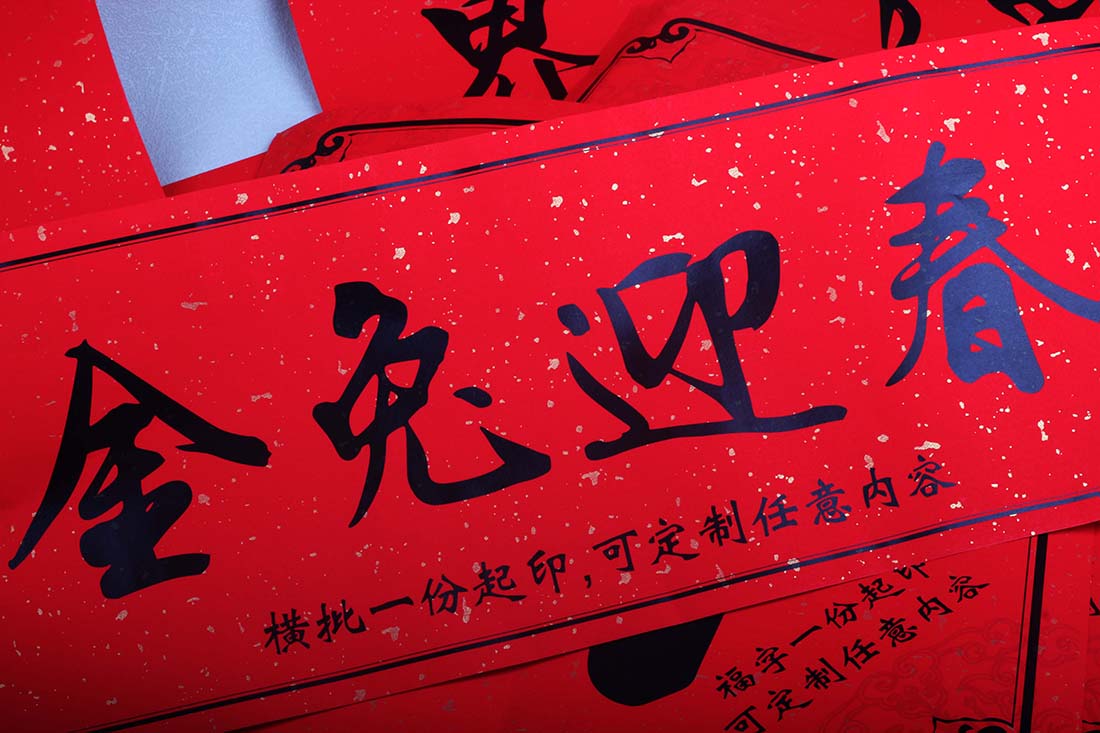 金兔迎春
横批一份起印,可定制任意内容
福字一份起印
可定制任意内容